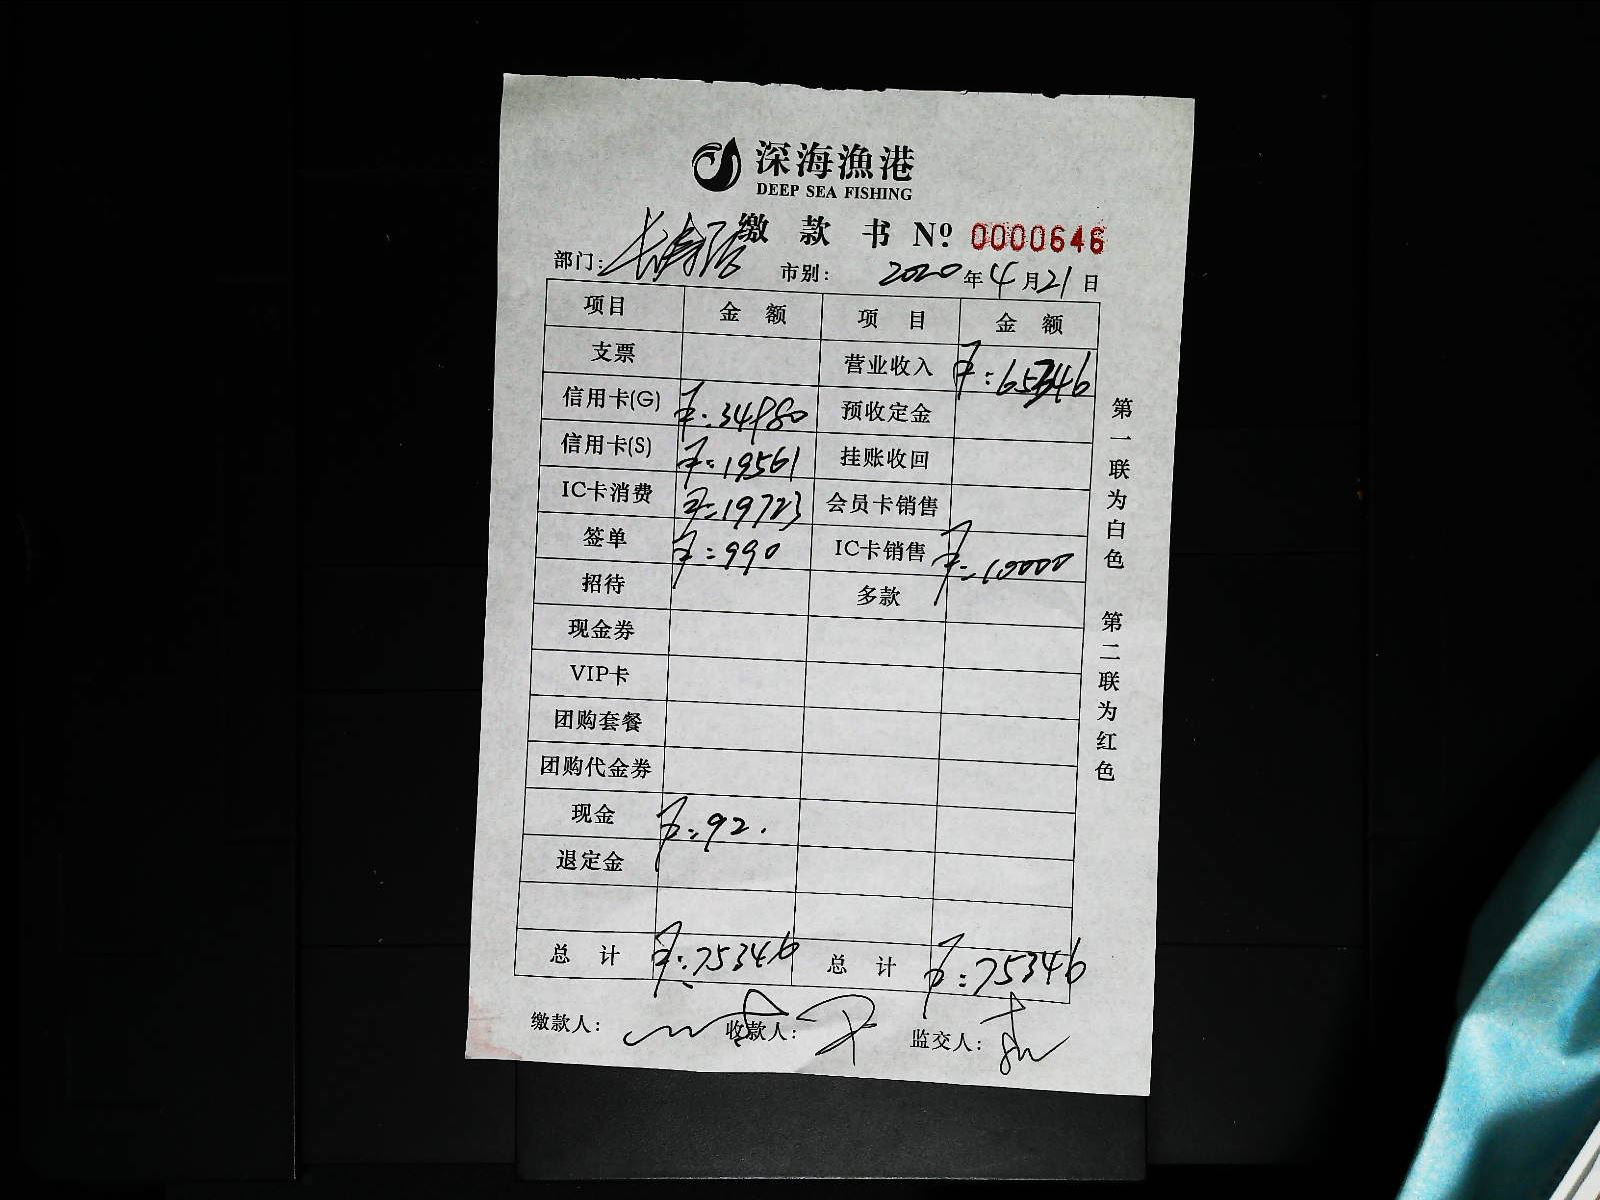 深海漁港
DEEP SEA FISHING
缴款书 Nº 0000646
部门: 市别: 2020年4月21日
项目 金额 项目 金额
支票 营业收入 ¥:65346
信用卡(G) ¥:34980 预收定金
信用卡(S) ¥:19561 挂账收回
IC卡消费 ¥:19723 会员卡销售
签单 ¥:990 IC卡销售 ¥:10000
招待 多款
现金券
VIP卡
团购套餐
团购代金券
现金 ¥:92.
退定金
总计 ¥:75346 总计 ¥:75346
缴款人: 收款人: 监交人:
第一联为白色 第二联为红色